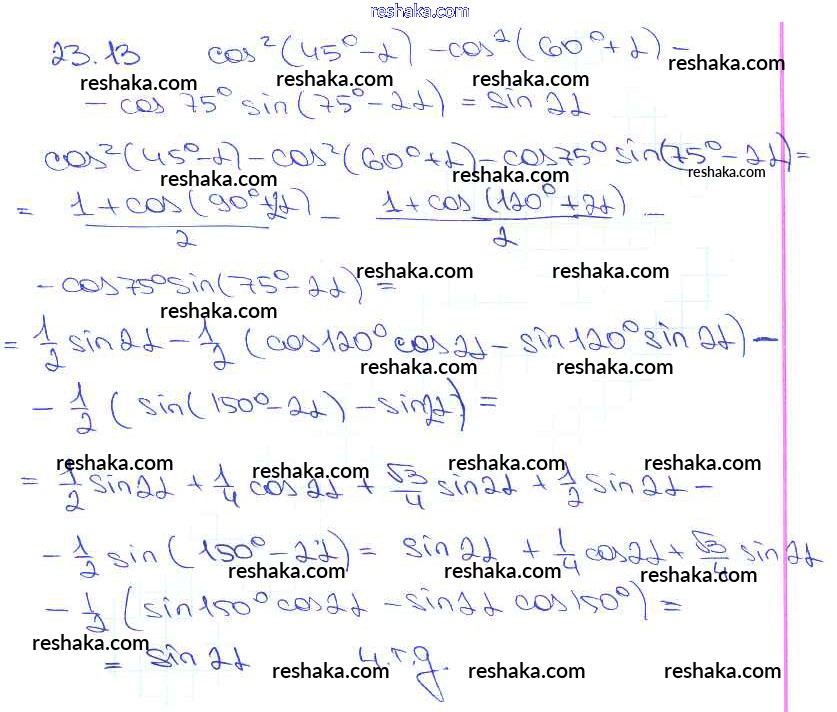 reshaka.com
23.13 cos²(45°-α) - cos²(60°+α) -
reshaka.com reshaka.com reshaka.com
- cos 75° sin(75°-2α) = sin 2α
cos²(45°-α) - cos²(60°+α) - cos75° sin(75°-2α) =
reshaka.com reshaka.com reshaka.com
= (1+cos(90°+2α))/2 - (1+cos(120°+2α))/2 -
reshaka.com reshaka.com
- cos75° sin(75°-2α) =
reshaka.com
= 1/2 sin2α - 1/2 (cos120° cos2α - sin120° sin2α) -
reshaka.com reshaka.com
- 1/2 (sin(150°-2α) - sin2α) =
reshaka.com reshaka.com reshaka.com reshaka.com
= 1/2 sin2α + 1/4 cos2α + √3/4 sin2α + 1/2 sin2α -
- 1/2 sin(150°-2α) = sin2α + 1/4 cos2α + √3/4 sin2α
reshaka.com reshaka.com reshaka.com
- 1/2 (sin150° cos2α - sin2α cos150°) =
reshaka.com
= sin2α ч.т.д.
reshaka.com reshaka.com reshaka.com